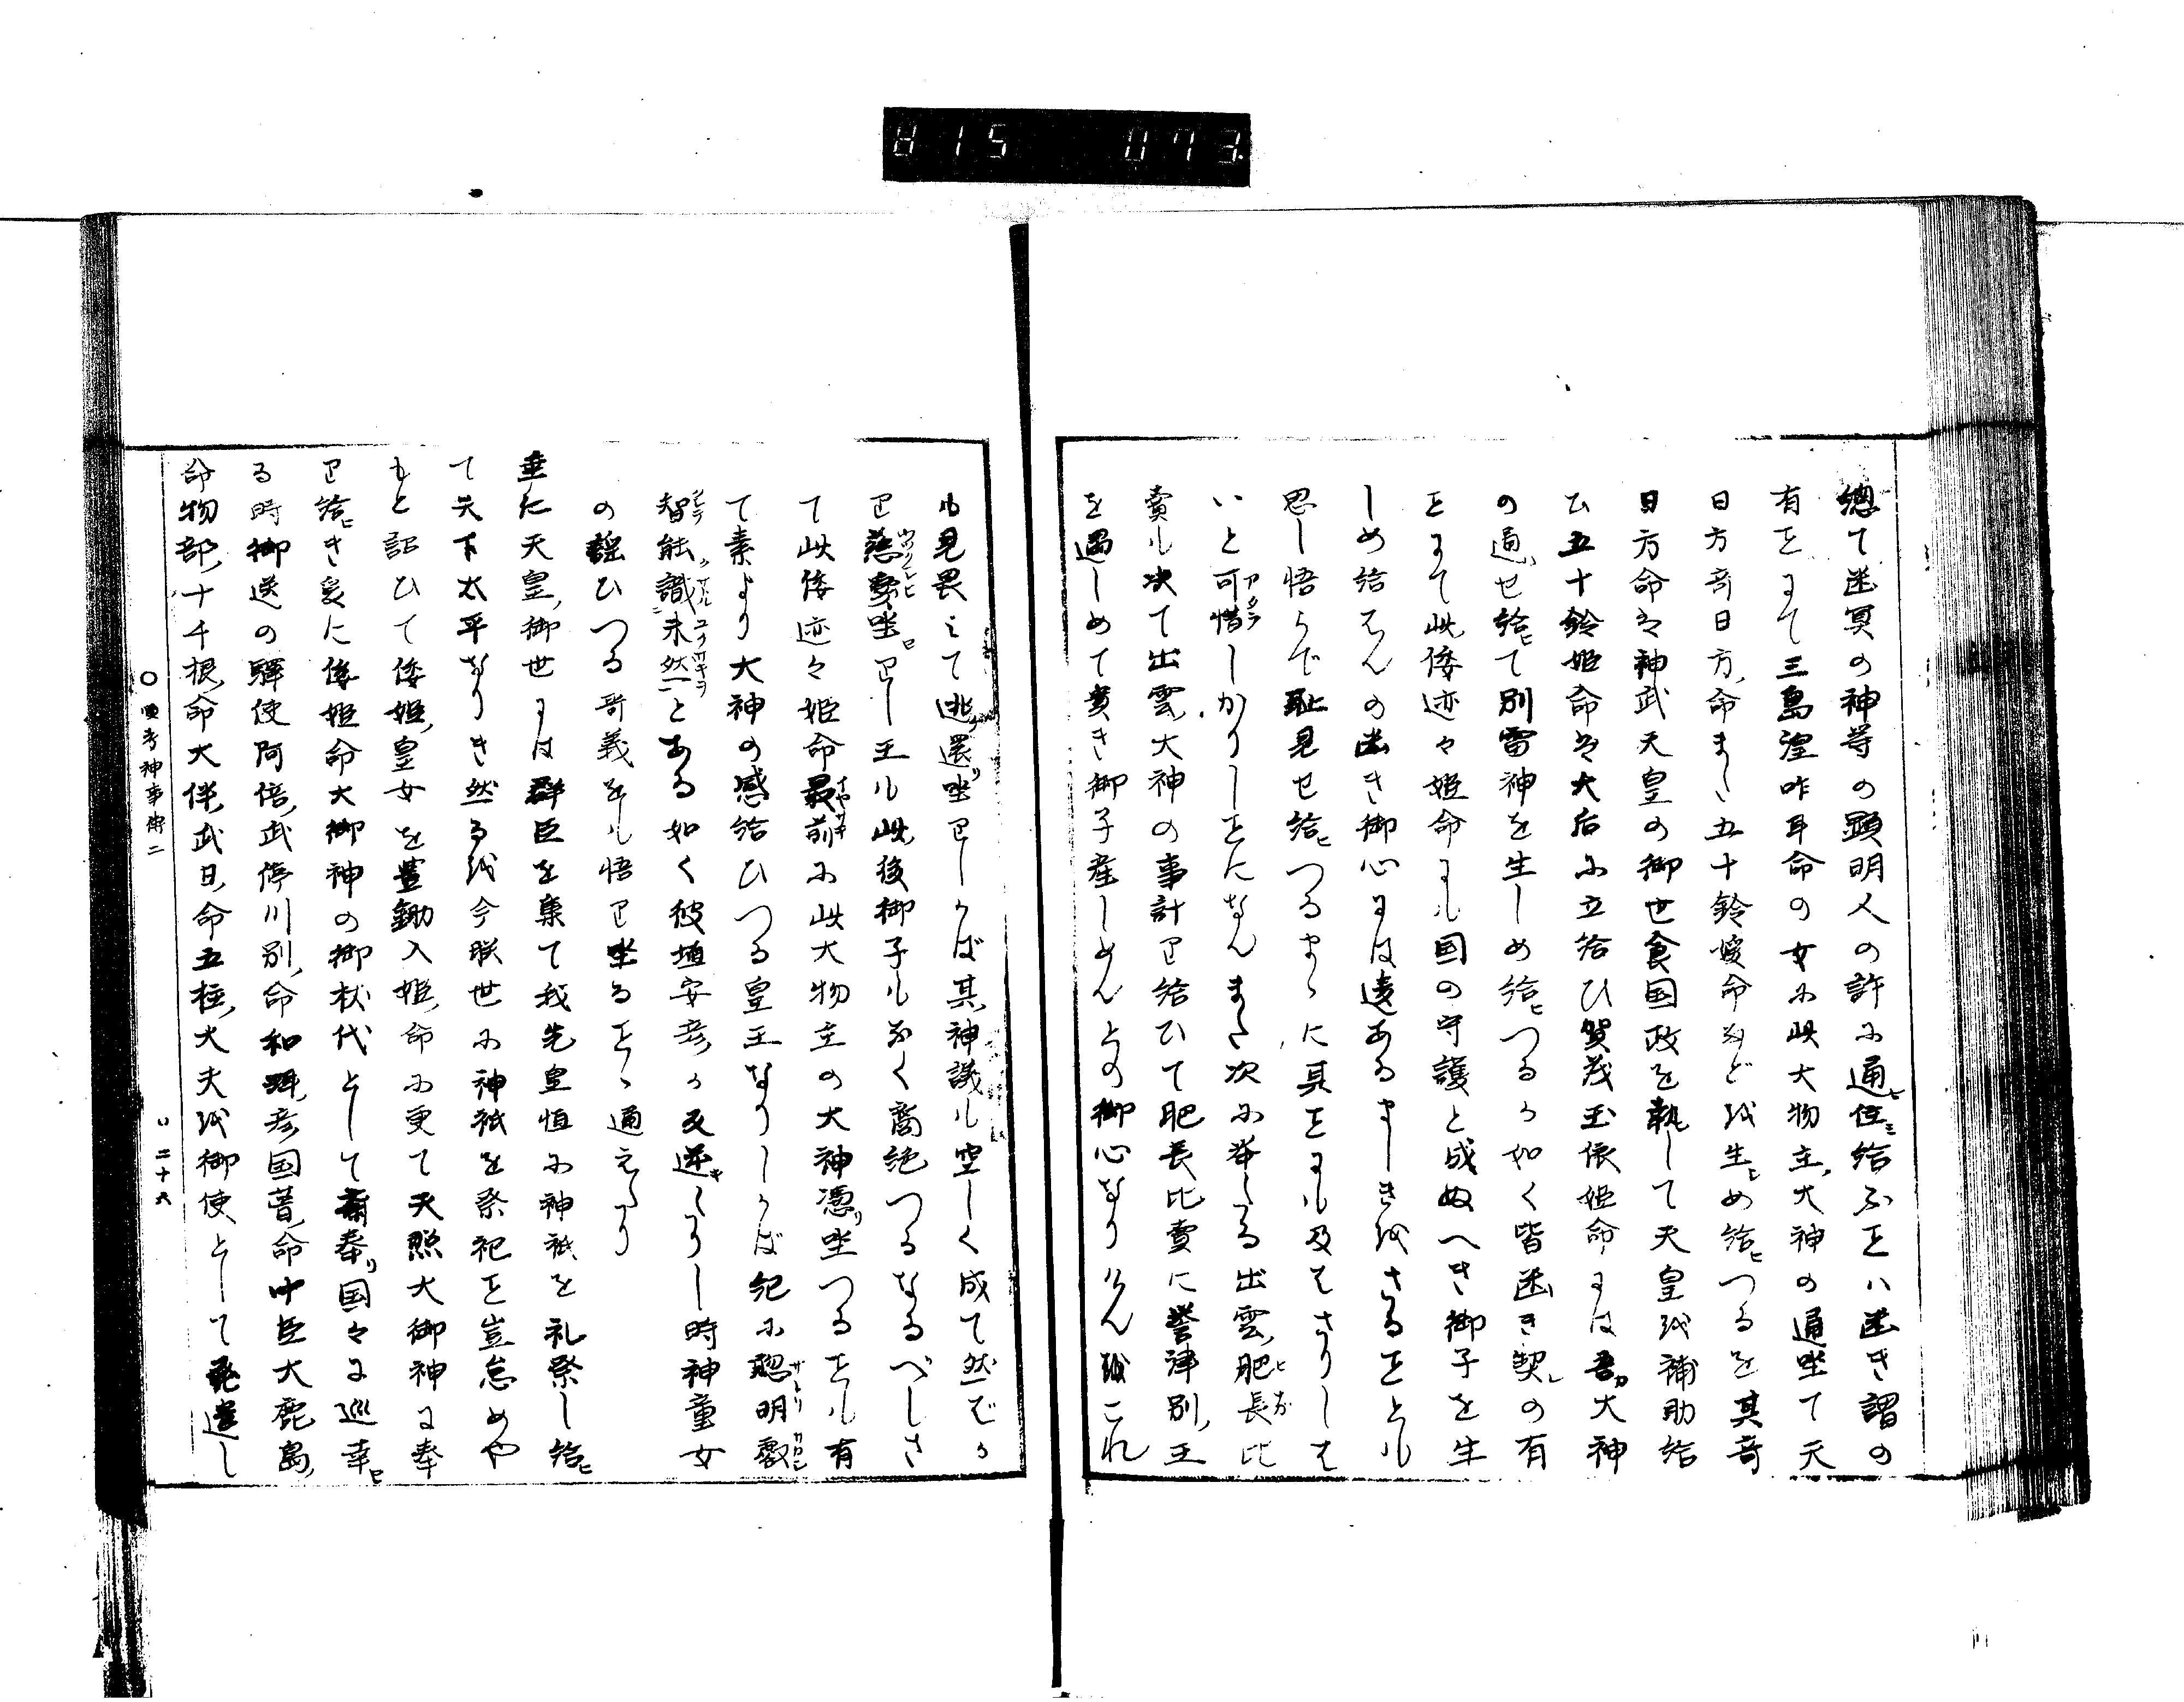 815 073
總て幽冥の神等の顕明人の許に通住給ふことハ幽き謂の
有ことにて三島湟咋耳命の女に此大物主大神の通坐て天
日方奇日方命また五十鈴媛命などを生しめ給ひつるを其奇
日方命は神武天皇の御世食国政を執して天皇を補助給
ひ五十鈴姫命は大后に立給ひ賀茂玉依姫命には大神
の通せ給ひて別雷神を生しめ給ひつるか如く皆幽き契の有
ことにて此倭迹々姫命にも国の守護と成ぬへき御子を生
しめ給はんの幽き御心には違あるましきをさることとも
思し悟らで耻見せ給ひつるから に其ことにも及はさりしは
いと可惜しかりしことになんまた次に挙たる出雲肥長比
賣も决て出雲大神の事計り給ひて肥長比賣に誉津別王
を遇しめて貴き御子産しめんとの御心なりけんをこれ
も見畏みて逃還坐りしかば其神議も空しく成て然ばか
り慈愛坐りし王も此後御子もなく裔絶つるなるべしさ
て此倭迹々姫命最前に此大物主の大神憑坐つることも有
て素より大神の感給ひつる皇王なりしかば紀に聡明叡
智能識未然とある如く彼埴安彦か反逆たりし時神童女
の謡ひつる哥義をも悟り坐ること 通えたり
垂仁天皇御世には群臣を集て我先皇恒に神祇を礼祭し給ひ
て天下太平なりき然るを今朕世に神祇を祭祀こと豈怠めや
もと詔ひて倭姫皇女を豊鋤入姫命に更て天照大御神に奉
り給ひき爰に倭姫命大御神の御杖代として斎奉り国々に巡幸
る時御送の驛使阿倍武渟川別命和珥彦国葺命中臣大鹿島
命物部十千根命大伴武日命五柱大夫を御使として発遣し
二十六